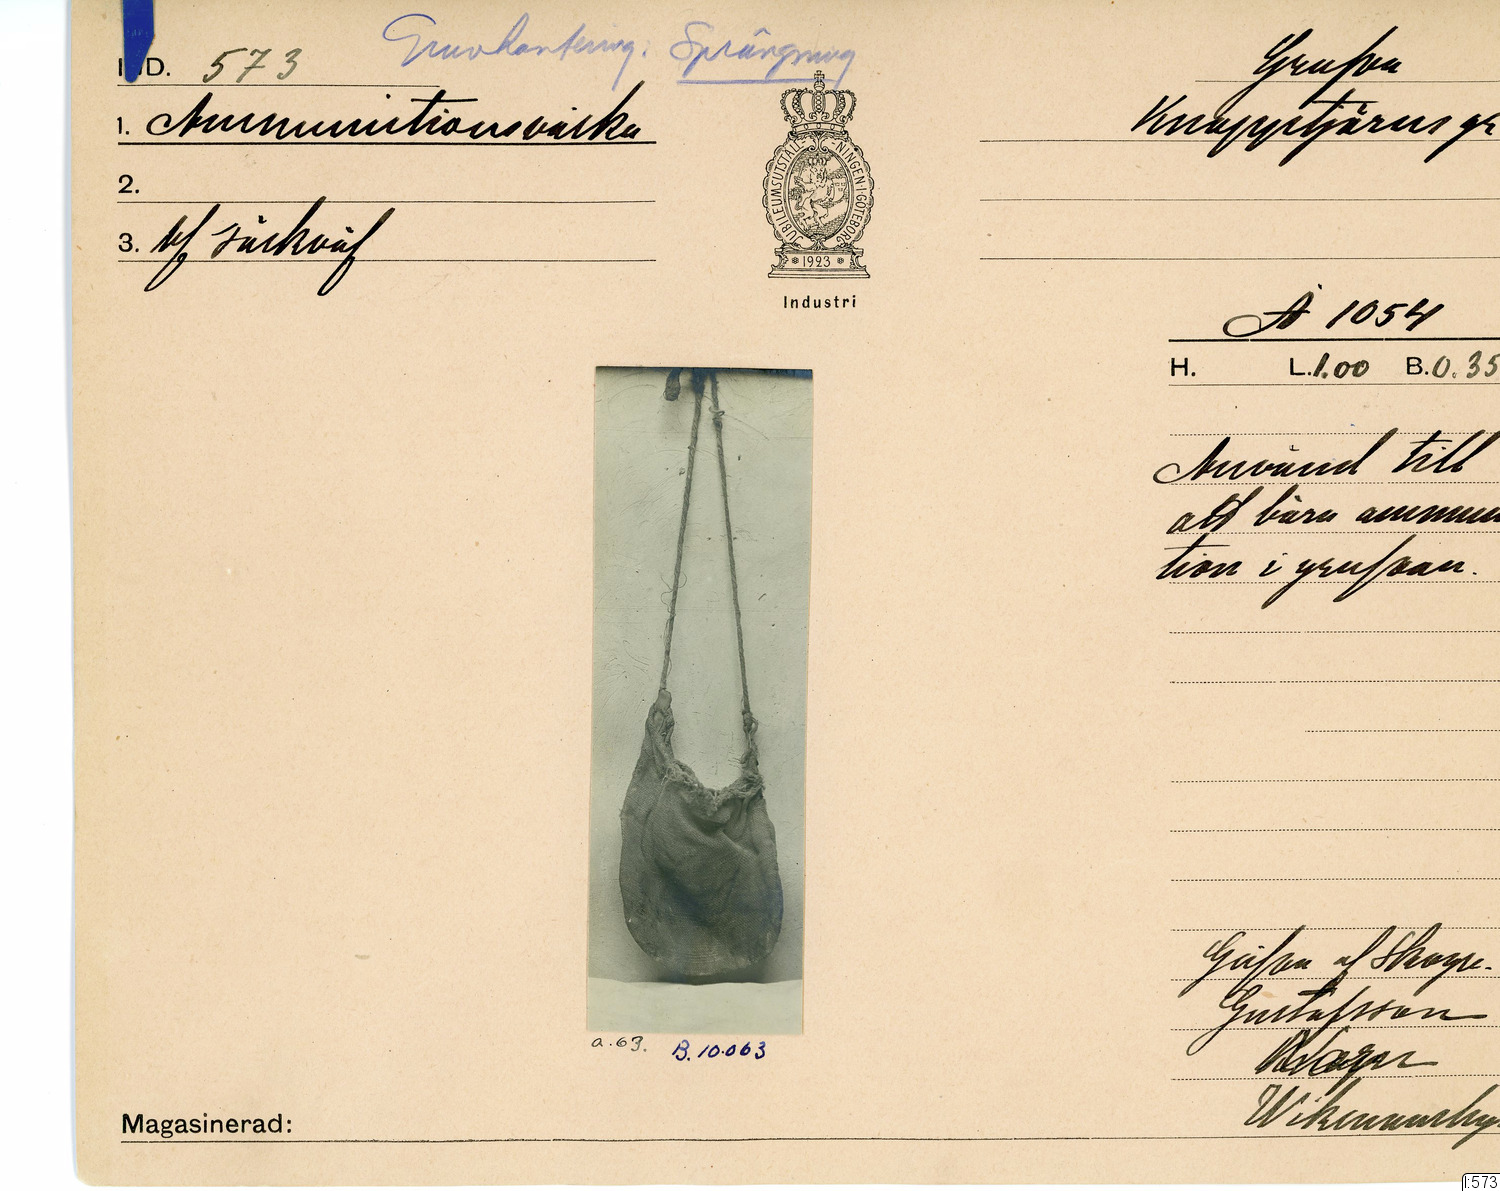 Gruvhantering. Sprängning
IND. 573
1. Ammunitionsväska
2.
3. Af säckväf
JUBILEUMSUTSTÄLLNINGEN·I·GÖTEBORG
* 1923 *
Industri
Grufva
Knapptjärns gr
Å 1054
H. L. 1.00 B. 0.35
Använd till
att bära ammuni
tion i grufvan.
Gåfva af Skogv.
Gustafsson
Wikmanshy
a.63. B.10.063
Magasinerad:
I:573